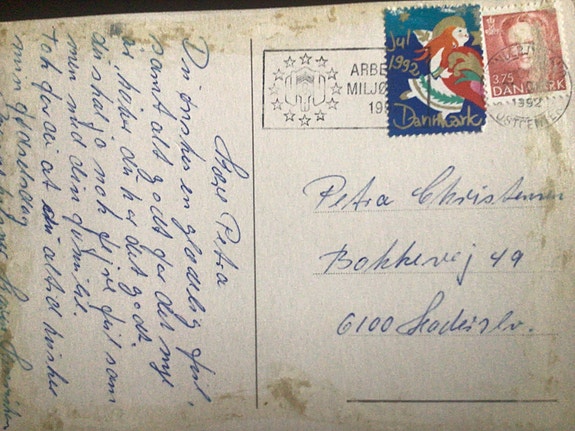 Kære Petra
Du ønskes en glædelig jul,
samt alt godt for det nye
år, håber du har det godt.
du skal jo nok fejre jul sam
men med din familie.
Tak for at du altid husker
min
ARBE
MILJØ
199
Jul
1992
Danmark
3.75
DANMARK
1992
Petra Christensen
Bakkevej 49
6100 Haderslev.